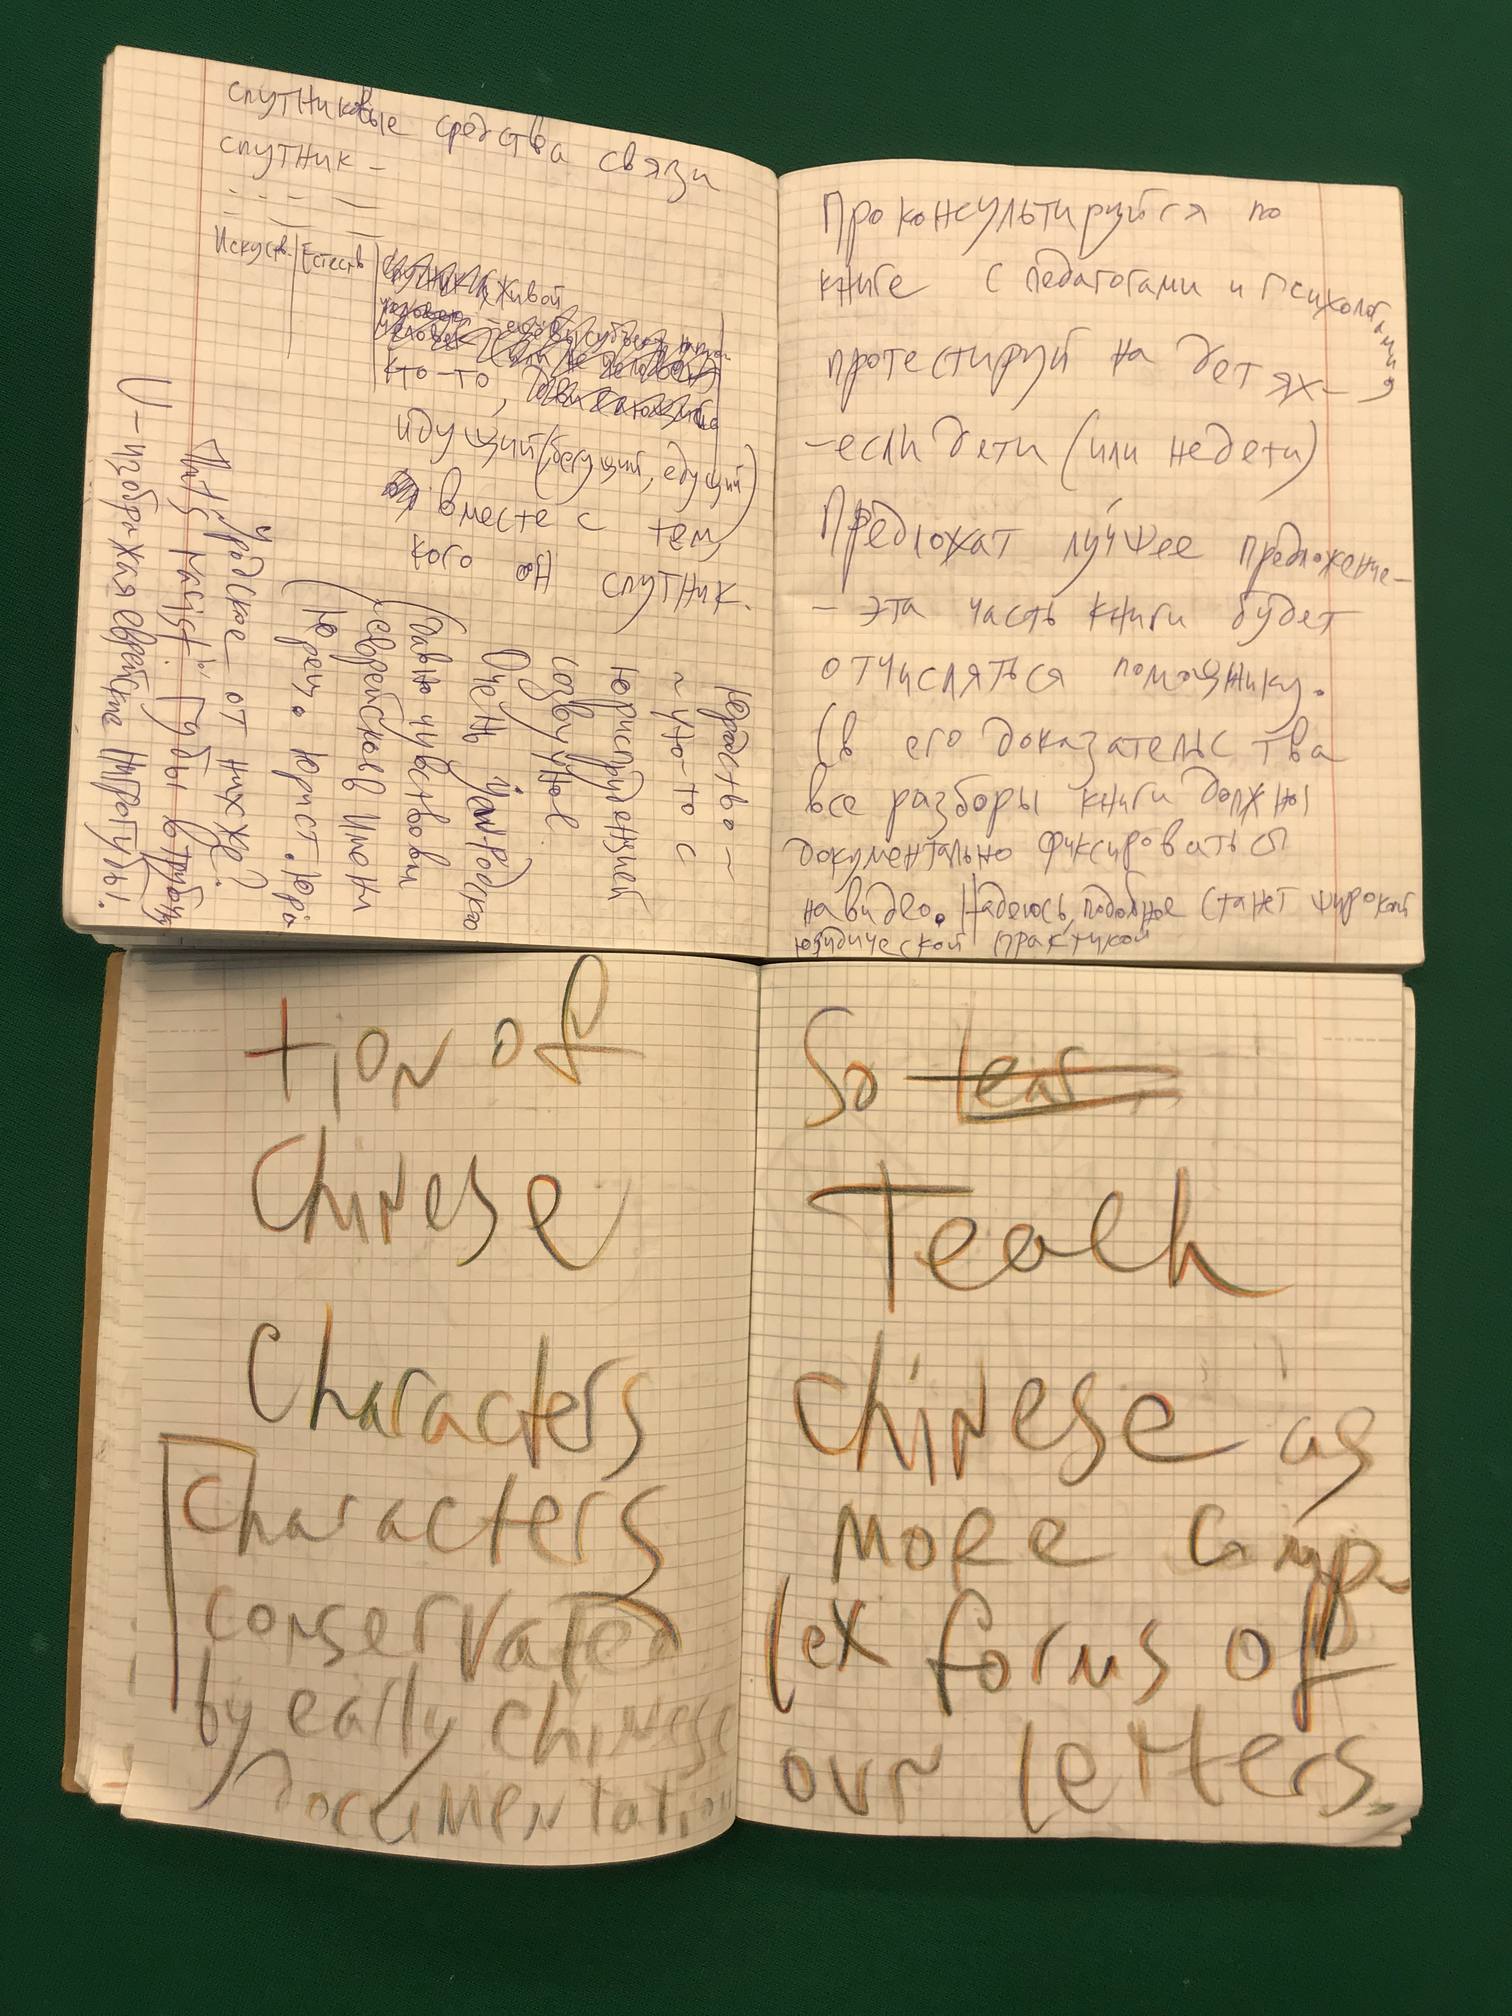 спутниковые средства связи
спутник –
Искуств. Естеств
живой
кто-то,
идущий (бегущий, едущий)
вместе с тем,
кого он спутник.
юродство ~
~ что-то с
юриспруденцией
созвучное
Очень
Давно чувствовал
еврейское в имени
Юрец. Юрист. Юра
от них же?
racist" Губы в трубу
U – изобр-жая еврейские
Проконсультируйся по
книге с педагогами и психологами,
протестируй на детях –
– если дети (или недети)
Предложат лучшее предложение –
– эта часть книги будет
отчисляться помощнику.
(в его доказательства
все разборы книги должны
документально фиксироваться
на видео. Надеюсь, подобное станет широкой
юридической практикой
tion of
Chinese
Characters
Characters
conservated
by early chinese
Documentation
So tear
Teach
Chinese as
more comp-
lex forms of
our letters.